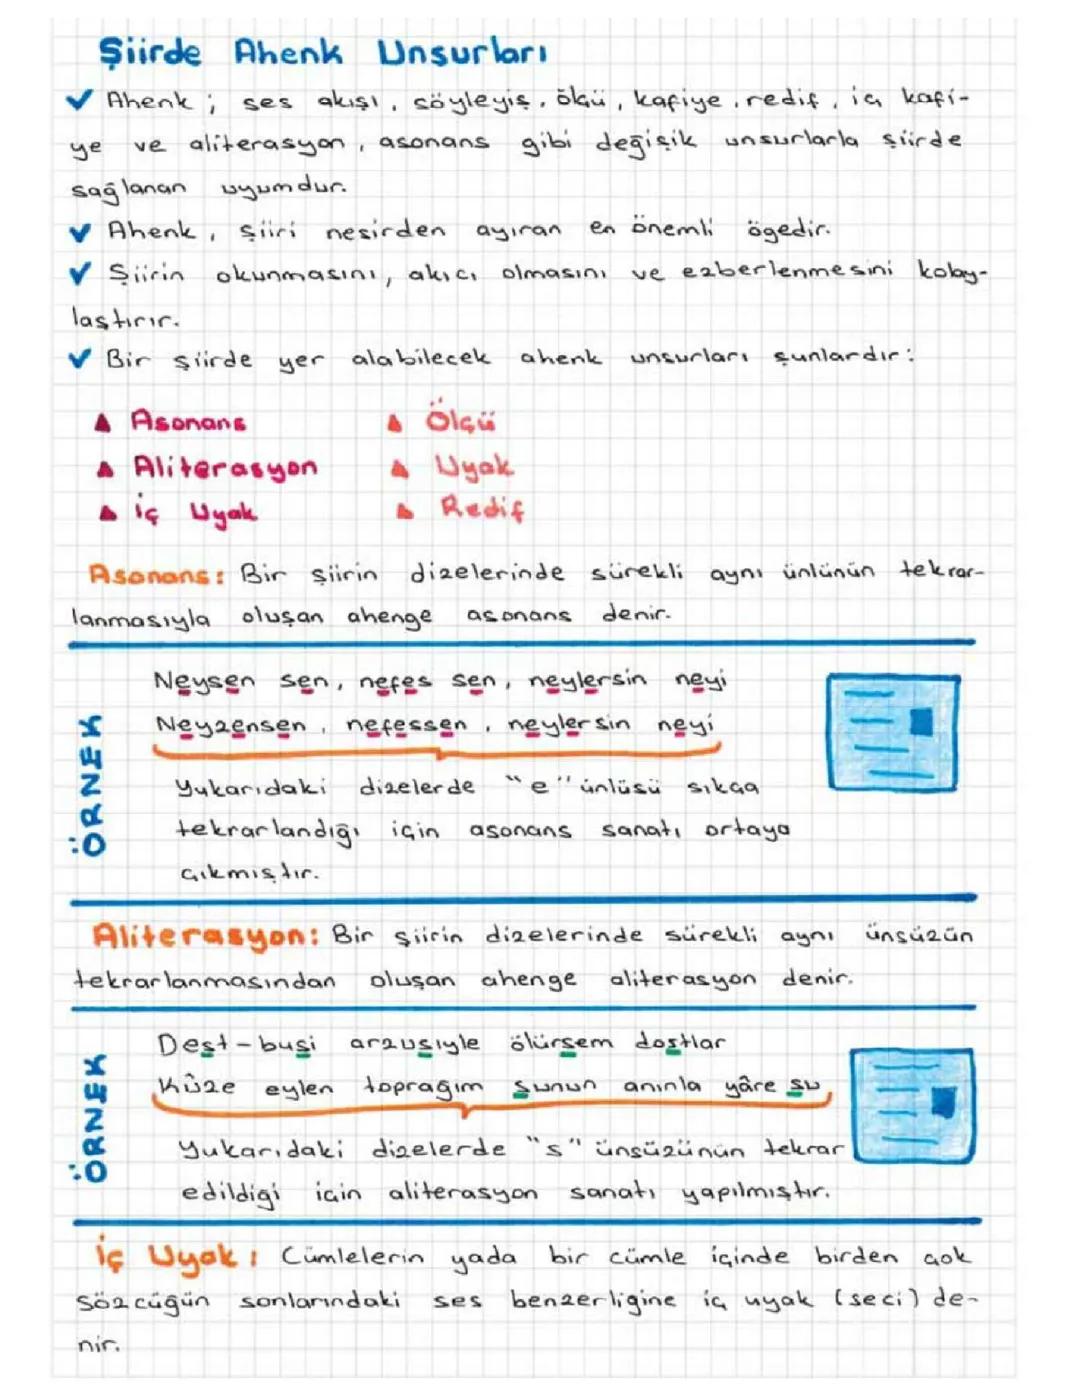 Şiirde Ahenk Unsurları
✓ Ahenk; ses akışı, söyleyiş, ölçü, kafiye, redif, iç kafi-
ye ve aliterasyon, asonans gibi değişik unsurlarla şiirde
sağlanan uyumdur.
✓ Ahenk, şiiri nesirden ayıran en önemli ögedir.
✓ Şiirin okunmasını, akıcı olmasını ve ezberlenmesini kolay-
laştırır.
✓ Bir şiirde yer alabilecek ahenk unsurları şunlardır:
▲ Asonans
▲ Aliterasyon
▲ İç Uyak
▲ Ölçü
▲ Uyak
▲ Redif
Asonans: Bir şiirin dizelerinde sürekli aynı ünlünün tekrar-
lanmasıyla oluşan ahenge asonans denir.
ÖRNEK
Neysen sen, nefes sen, neylersin neyi
Neyzensen, nefessen, neylersin neyi
Yukarıdaki dizelerde "e" ünlüsü sıkça
tekrarlandığı için asonans sanatı ortaya
çıkmıştır.
Aliterasyon: Bir şiirin dizelerinde sürekli aynı ünsüzün
tekrarlanmasından oluşan ahenge aliterasyon denir.
ÖRNEK
Dest-buşi arzusıyle ölürsem dostlar
Kûze eylen toprağım sunun anınla yâre su
Yukarıdaki dizelerde "s" ünsüzünün tekrar
edildiği için aliterasyon sanatı yapılmıştır.
İç Uyak: Cümlelerin yada bir cümle içinde birden çok
sözcüğün sonlarındaki ses benzerligine iç uyak (seci) de-
nir.